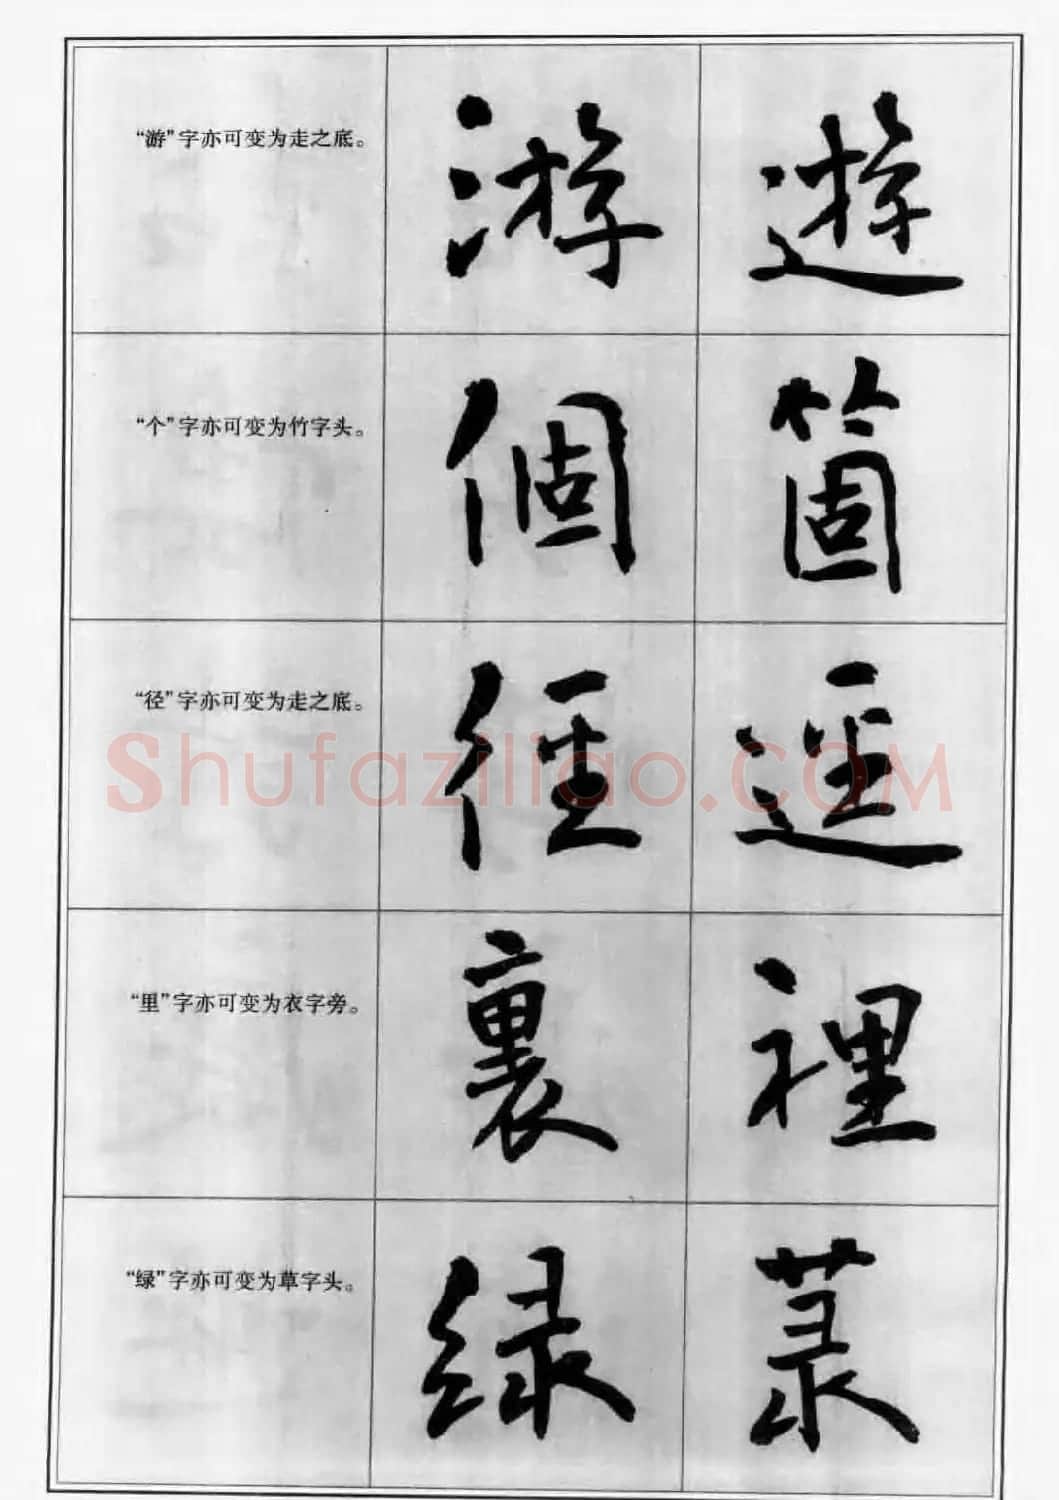 “游”字亦可变为走之底。 游 遊
“个”字亦可变为竹字头。 個 箇
“径”字亦可变为走之底。 徑 逕
Shufaziliao.COM
“里”字亦可变为衣字旁。 裏 裡
“绿”字亦可变为草字头。 绿 菉